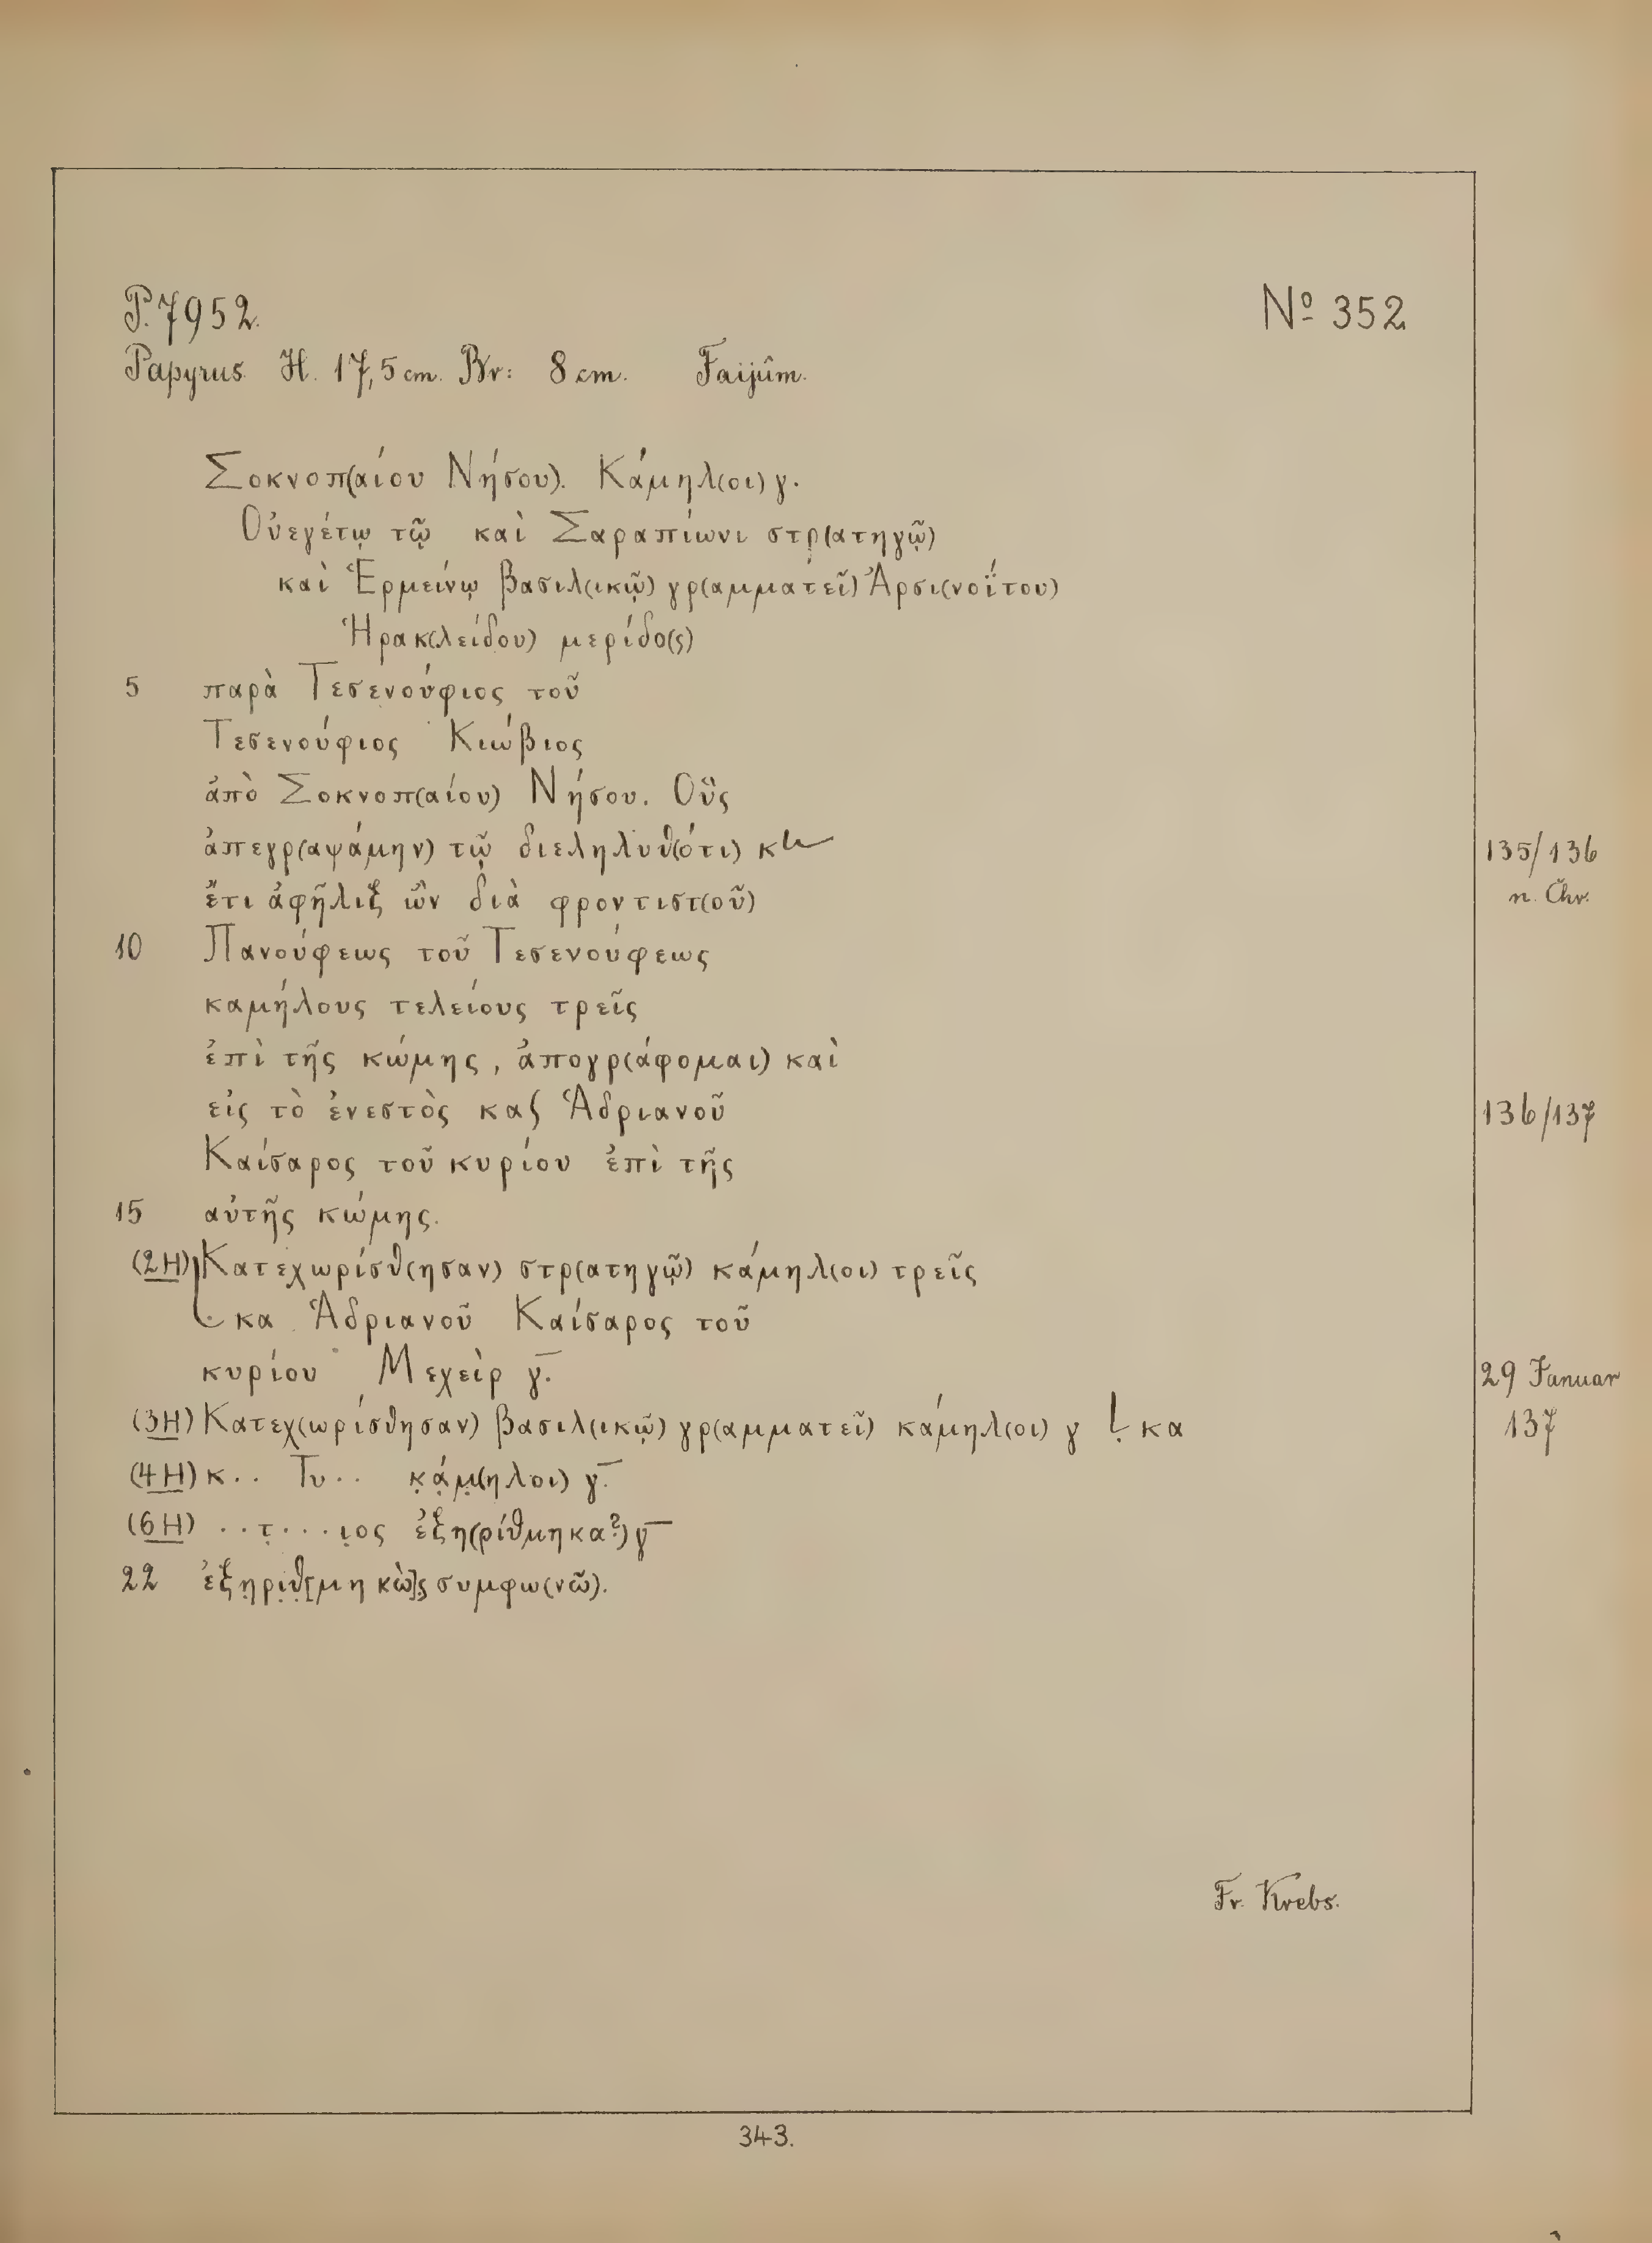 P. 7952. Nº 352
Papyrus H. 17,5 cm. Br: 8 cm. Faijûm.
Σοκνοπ(αίου Νήσου). Κάμηλ(οι) γ.
Οὐεγέτῳ τῷ καὶ Σαραπίωνι στρ(ατηγῷ)
καὶ Ἑρμείνῳ βασιλ(ικῷ) γρ(αμματεῖ) Ἀρσι(νοΐτου)
Ἡρακ(λείδου) μερίδο(ς)
5 παρὰ Τεσενούφιος τοῦ
Τεσενούφιος Κιώβιος
ἀπὸ Σοκνοπ(αίου) Νήσου. Οὓς
ἀπεγρ(αψάμην) τῷ διεληλυθ(ότι) κ 135/136
ἔτι ἀφῆλιξ ὢν διὰ φροντιστ(οῦ) n. Chr.
10 Πανούφεως τοῦ Τεσενούφεως
καμήλους τελείους τρεῖς
ἐπὶ τῆς κώμης, ἀπογρ(άφομαι) καὶ
εἰς τὸ ἐνεστὸς κα Ἁδριανοῦ 136/137
Καίσαρος τοῦ κυρίου ἐπὶ τῆς
15 αὐτῆς κώμης.
(2H) Κατεχωρίσθ(ησαν) στρ(ατηγῷ) κάμηλ(οι) τρεῖς
κα Ἁδριανοῦ Καίσαρος τοῦ
κυρίου Μεχεὶρ γ̅. 29 Januar
(3H) Κατεχ(ωρίσθησαν) βασιλ(ικῷ) γρ(αμματεῖ) κάμηλ(οι) γ 𐅹 κα 137
(4H) κ.. Τυ.. κ̣ά̣μ̣(ηλοι) γ̅.
(6H) ..τ̣....ι̣ος ἐξη(ρίθμηκα?) γ̅
22 ἐξη̣ρι̣θ̣[μηκὼ]ς̣ συμφω(νῶ).
Fr. Krebs.
343.